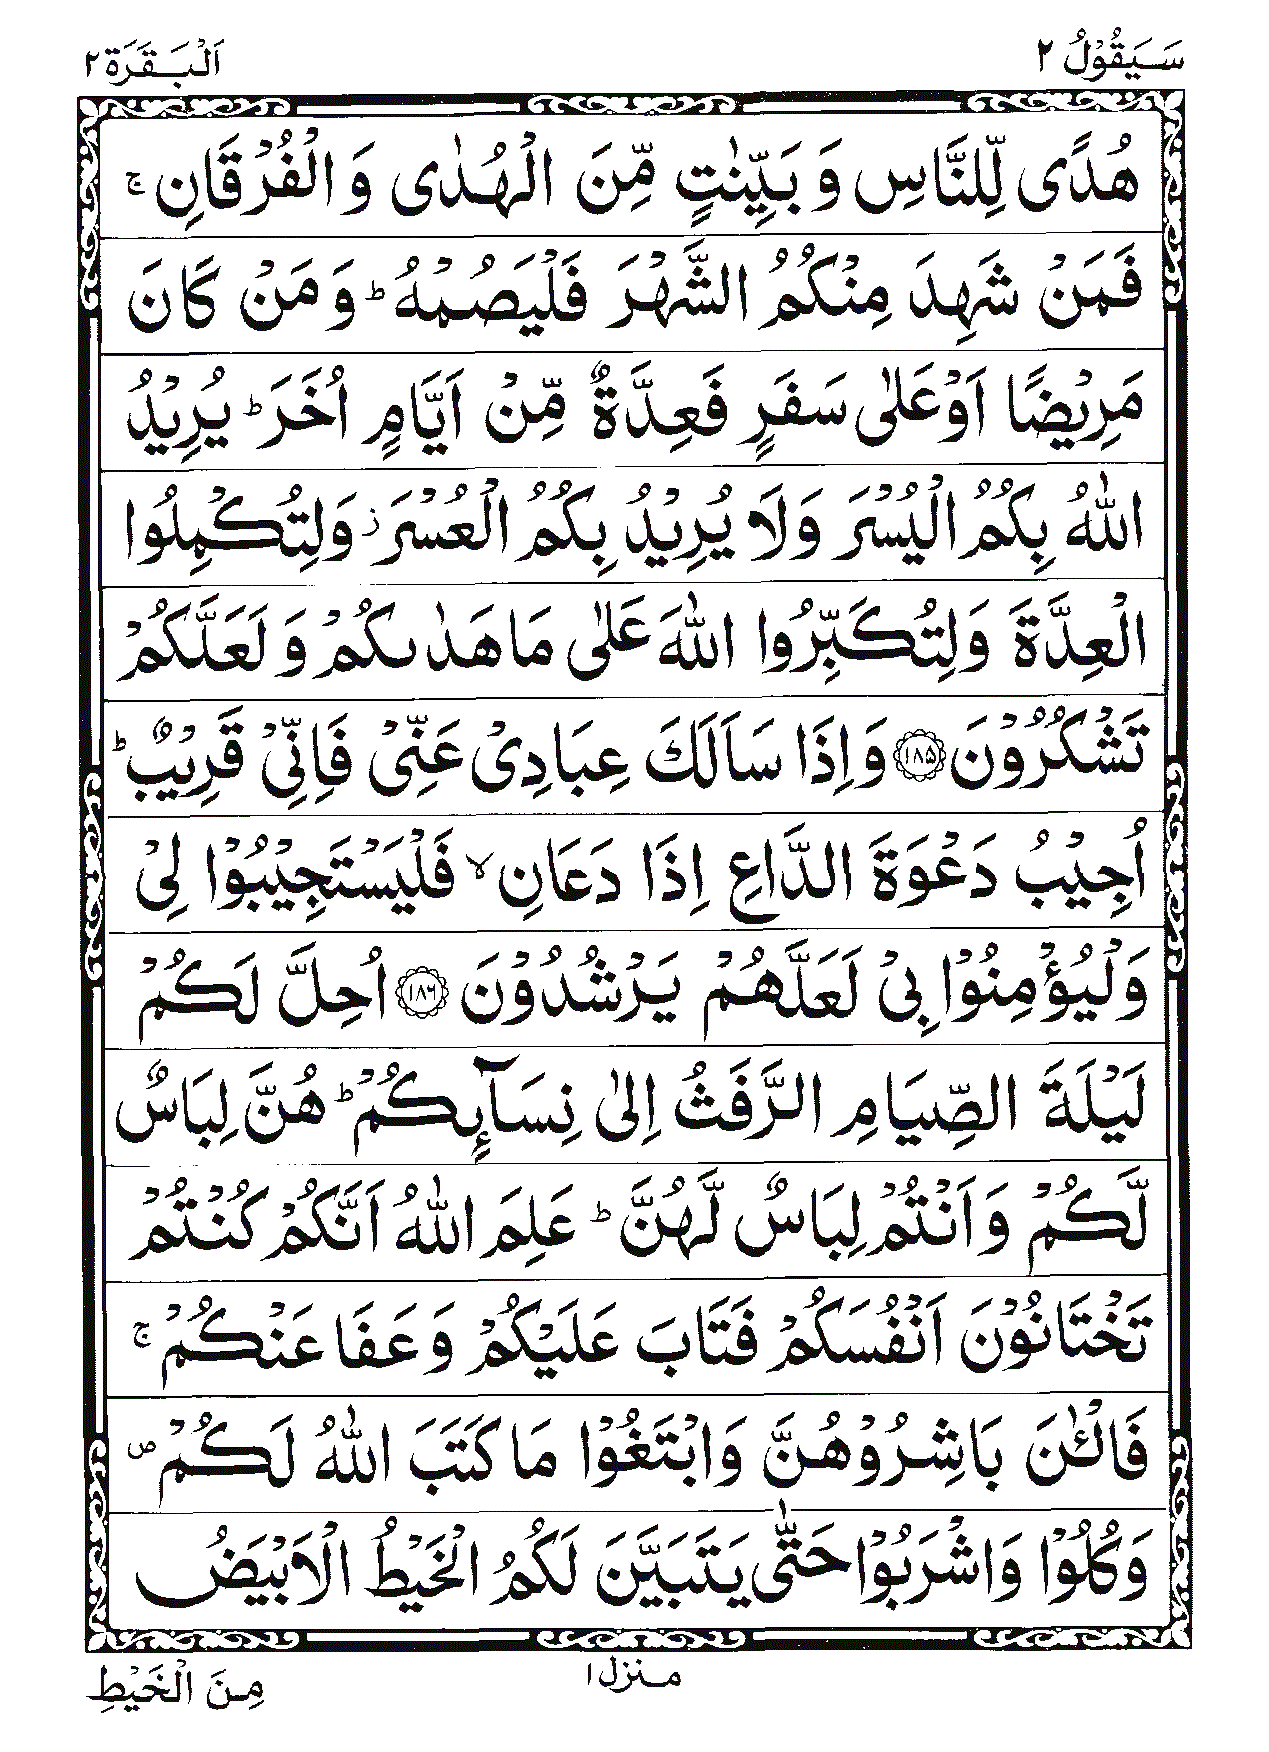 سَيَقُوْلُ ٢
اَلْبَقَرَة ٢
هُدًى لِّلنَّاسِ وَ بَيِّنٰتٍ مِّنَ الْهُدٰى وَ الْفُرْقَانِ ۚ
فَمَنْ شَهِدَ مِنْكُمُ الشَّهْرَ فَلْيَصُمْهُ ؕ وَ مَنْ كَانَ
مَرِيْضًا اَوْ عَلٰى سَفَرٍ فَعِدَّةٌ مِّنْ اَيَّامٍ اُخَرَ ؕ يُرِيْدُ
اللّٰهُ بِكُمُ الْيُسْرَ وَلَا يُرِيْدُ بِكُمُ الْعُسْرَ ز وَلِتُكْمِلُوا
الْعِدَّةَ وَلِتُكَبِّرُوا اللّٰهَ عَلٰى مَا هَدٰىكُمْ وَ لَعَلَّكُمْ
تَشْكُرُوْنَ ﴿۱۸۵﴾ وَ اِذَا سَاَلَكَ عِبَادِيْ عَنِّيْ فَاِنِّيْ قَرِيْبٌ ؕ
اُجِيْبُ دَعْوَةَ الدَّاعِ اِذَا دَعَانِ ۙ فَلْيَسْتَجِيْبُوْا لِيْ
وَلْيُؤْمِنُوْا بِيْ لَعَلَّهُمْ يَرْشُدُوْنَ ﴿۱۸۶﴾ اُحِلَّ لَكُمْ
لَيْلَةَ الصِّيَامِ الرَّفَثُ اِلٰى نِسَآىِٕكُمْ ؕ هُنَّ لِبَاسٌ
لَّكُمْ وَ اَنْتُمْ لِبَاسٌ لَّهُنَّ ؕ عَلِمَ اللّٰهُ اَنَّكُمْ كُنْتُمْ
تَخْتَانُوْنَ اَنْفُسَكُمْ فَتَابَ عَلَيْكُمْ وَ عَفَا عَنْكُمْ ۚ
فَالْـٰٔنَ بَاشِرُوْهُنَّ وَابْتَغُوْا مَا كَتَبَ اللّٰهُ لَكُمْ ص
وَكُلُوْا وَاشْرَبُوْا حَتّٰى يَتَبَيَّنَ لَكُمُ الْخَيْطُ الْاَبْيَضُ
منزل ١
مِنَ الْخَيْطِ